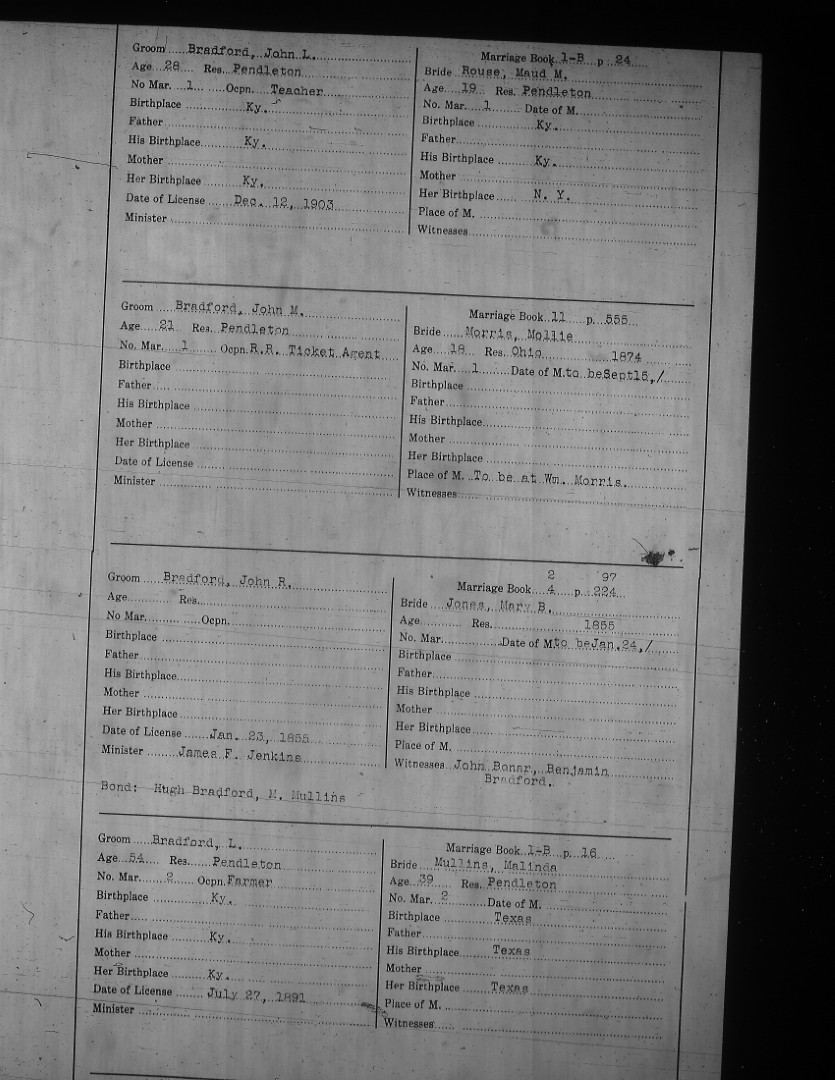 Groom Bradford, John L.
Age 28 Res. Pendleton
No Mar. 1 Ocpn. Teacher
Birthplace Ky.
Father
His Birthplace Ky.
Mother
Her Birthplace Ky.
Date of License Dec. 12, 1903
Minister
Marriage Book 1-B p. 24
Bride Rouse, Maud M.
Age 19 Res. Pendleton
No. Mar. 1 Date of M.
Birthplace Ky.
Father
His Birthplace Ky.
Mother
Her Birthplace N. Y.
Place of M.
Witnesses
Groom Bradford, John M.
Age 21 Res. Pendleton
No. Mar. 1 Ocpn. R.R. Ticket Agent
Birthplace
Father
His Birthplace
Mother
Her Birthplace
Date of License
Minister
Marriage Book 11 p. 555
Bride Morris, Mollie
Age 18 Res. Ohio 1874
No. Mar. 1 Date of M. to be Sept 15, /
Birthplace
Father
His Birthplace
Mother
Her Birthplace
Place of M. To be at Wm. Morris.
Witnesses
Groom Bradford, John R.
Age Res.
No Mar. Ocpn.
Birthplace
Father
His Birthplace
Mother
Her Birthplace
Date of License Jan. 23, 1855
Minister James F. Jenkins
Bond: Hugh Bradford, M. Mullins
2 97
Marriage Book 4 p. 224
Bride Jones, Mary B.
Age Res. 1855
No. Mar. Date of M. to be Jan. 24, /
Birthplace
Father
His Birthplace
Mother
Her Birthplace
Place of M.
Witnesses John Bonar, Benjamin
Bradford.
Groom Bradford, L.
Age 54 Res. Pendleton
No. Mar. 2 Ocpn. Farmer
Birthplace Ky.
Father
His Birthplace Ky.
Mother
Her Birthplace Ky.
Date of License July 27, 1891
Minister
Marriage Book 1-B p. 16
Bride Mullins, Malinda
Age 39 Res. Pendleton
No. Mar. 2 Date of M.
Birthplace Texas
Father
His Birthplace Texas
Mother
Her Birthplace Texas
Place of M.
Witnesses